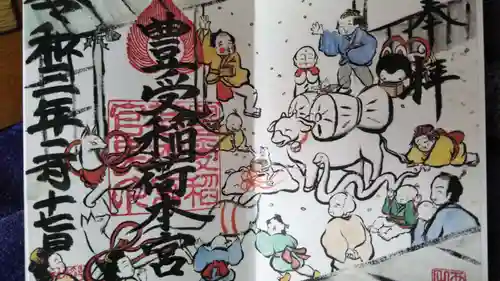 奉拝
豊受稲荷本宮
令和三年一月十七日